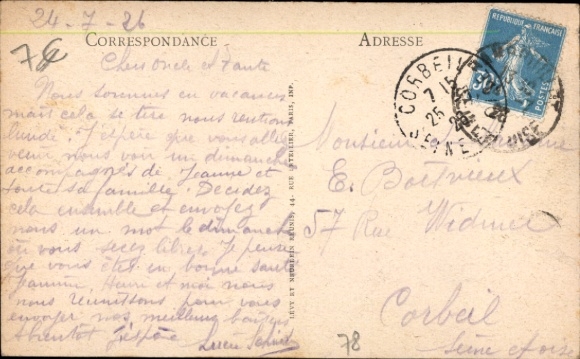 24-7-26
7€
CORRESPONDANCE
ADRESSE
Chers oncle et tante
Nous sommes en vacances
mais cela se tire nous rentrons
lundi. J'espère que vous allez
venir nous voir un dimanche
accompagnés de Jeanne et
toute sa famille. Décidez
cela ensemble et envoyez
nous un mot le dimanche
où vous serez libres. Je pense
que vous êtes en bonne santé
Jeanne, Henri et moi nous
nous réunissons pour vous
envoyer nos meilleurs baisers
A bientôt j'espère
Lucie
LÉVY ET NEURDEIN RÉUNIS, 44, RUE LETELLIER, PARIS, IMP.
REPUBLIQUE FRANÇAISE
POSTES
CORBEIL
7 15
25
Monsieur et Madame
E.
57 Rue Widmer
Corbeil
Seine et Oise
78